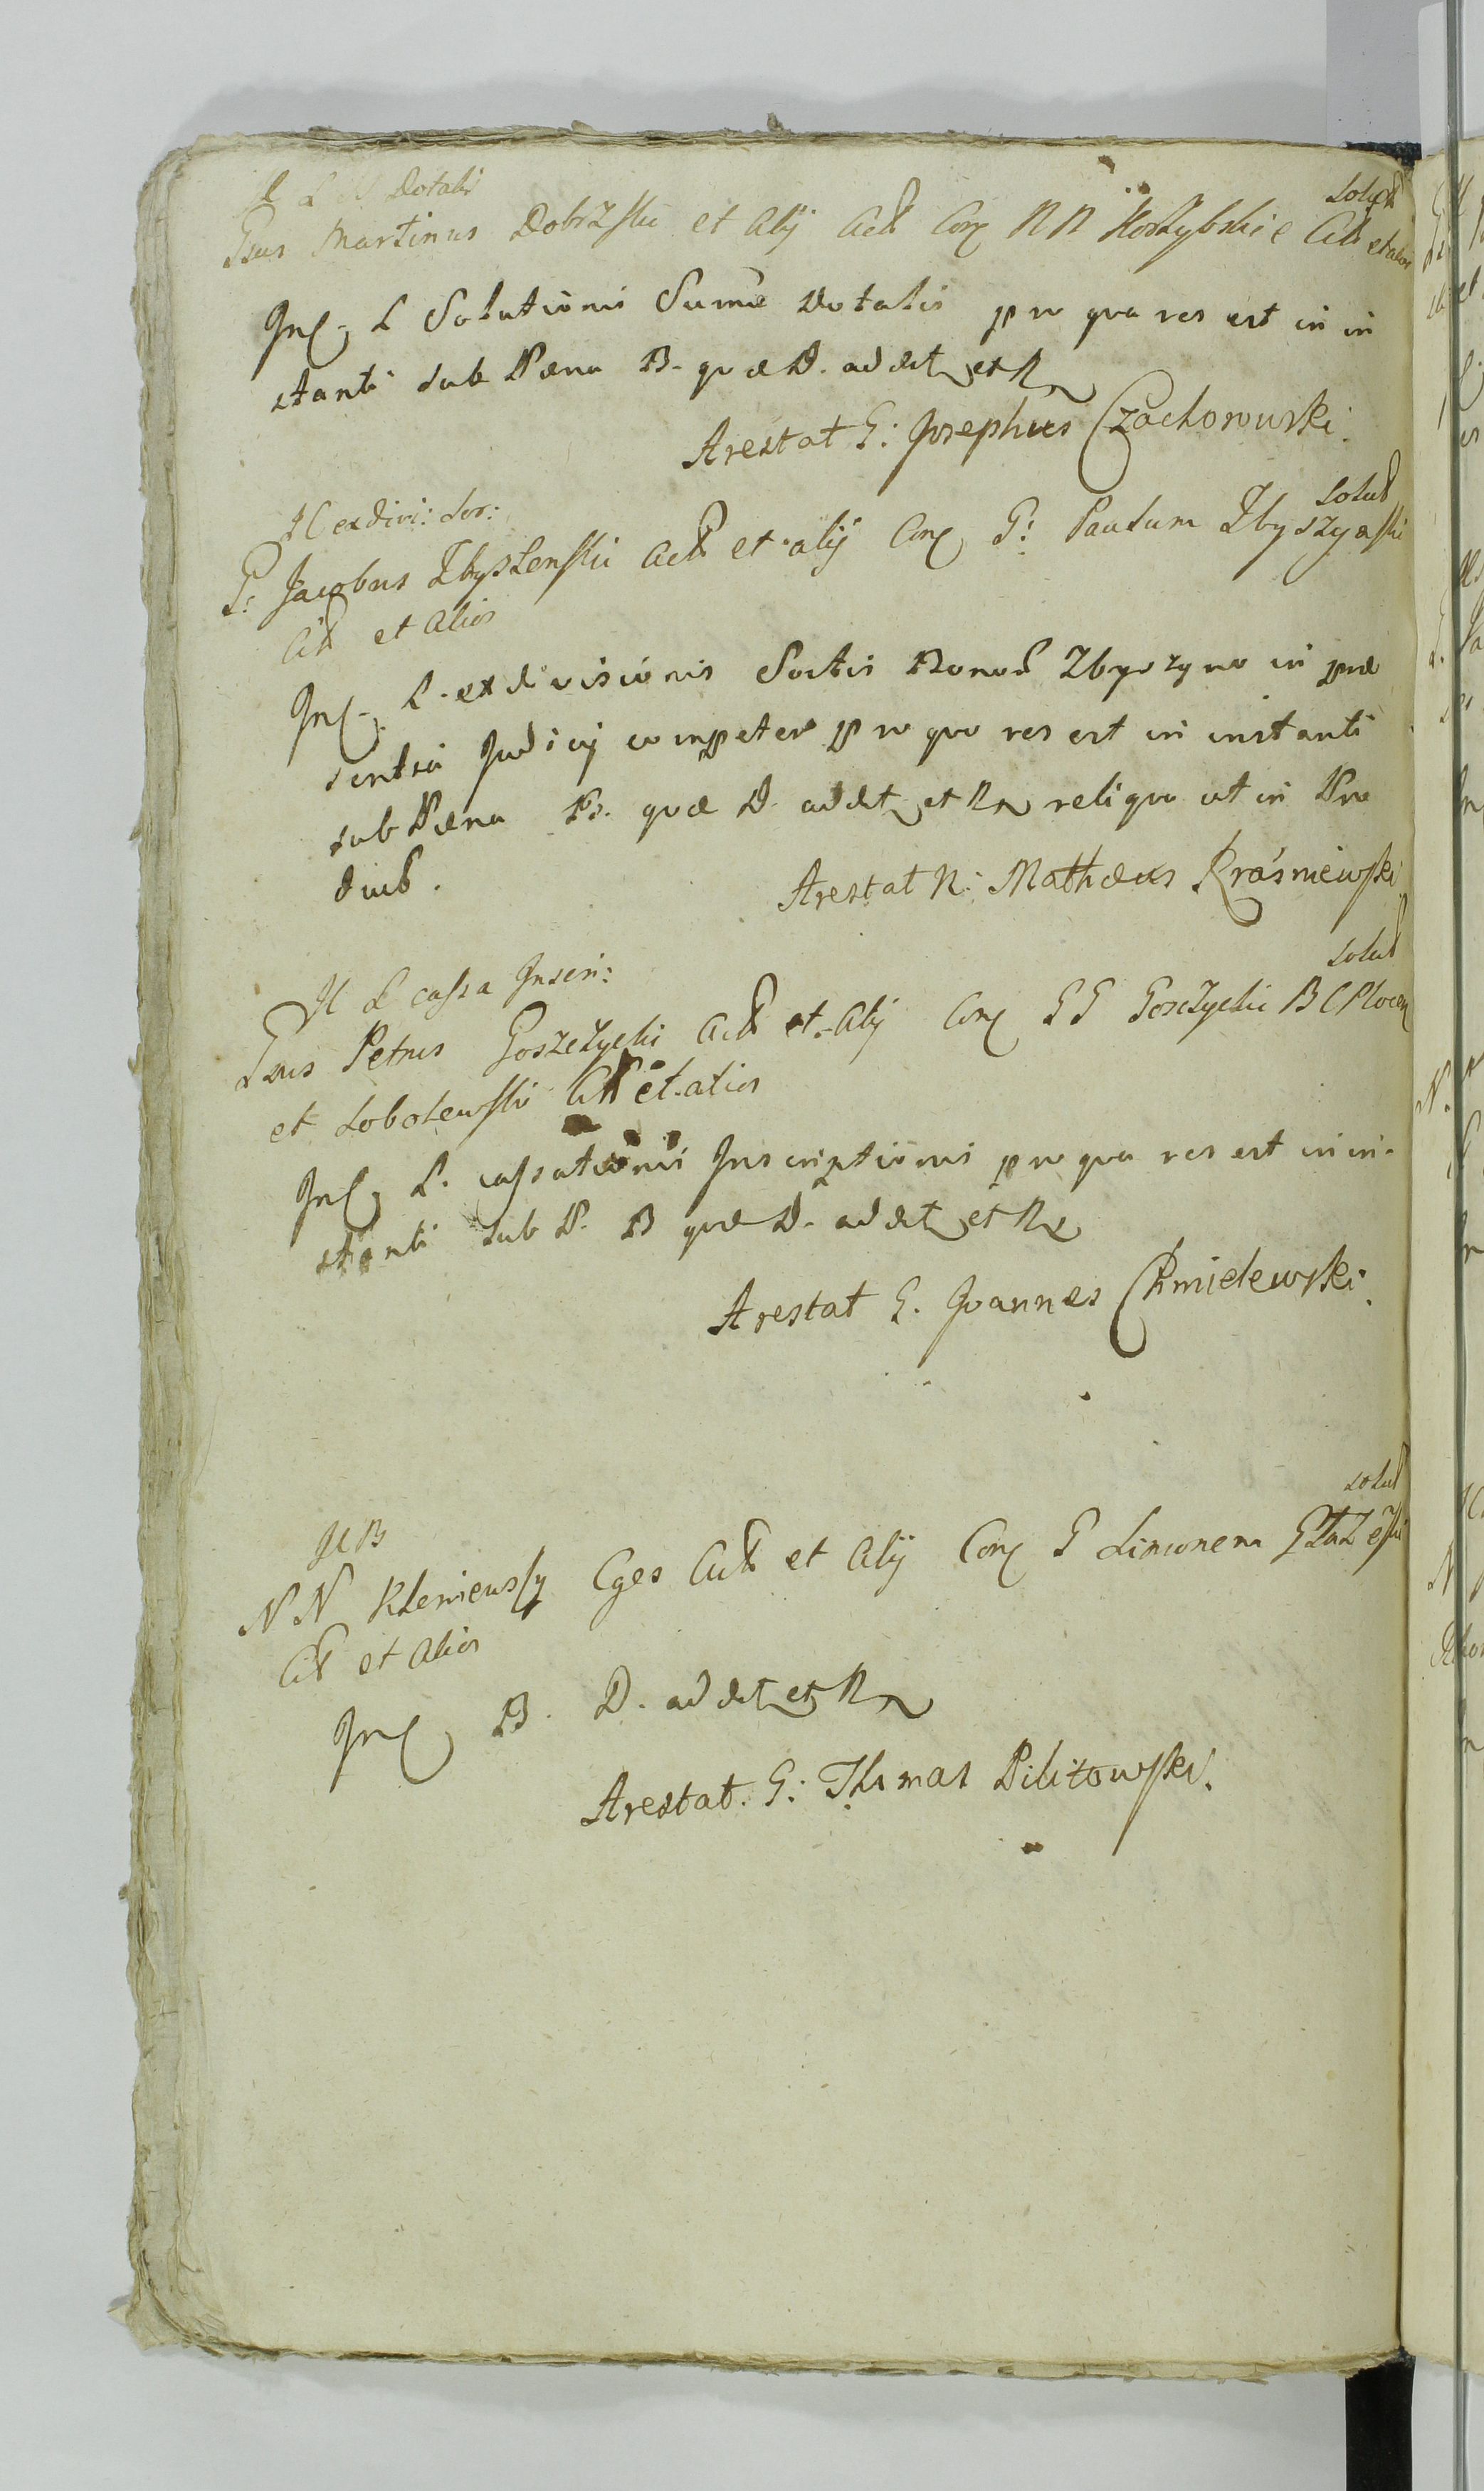 Dotalis
Solut
Gsus Martinus Dobrzski et Alij Act Con NN Koszybskie Cit et alios
In L Solutionis Sumæ Dotalis pro qua res est in in
stanti sub Pæna B. quæ D. ad det et R
Arestat G: Josephus Czachorowski.
H exdivi: Sor:
Solut
G: Jacobus Zbyszenski Act et alij Con G: Paulum Zbyszynski
Cit et Alios
In L. exdivisionis Sortis Bonor Zbyszyno in præ
sentia Judicij competen pro quo res est in instanti
sub Pæna B. quæ D. ad det et R reliqua ut in Præ
diub.
Arestat N: Mathæus Kraśniewski
H L cassa Inscri:
Solut
Gsus Petrus Goszczycki Act et Alij Con GG Goszczycki BC Plocen
et Sobolewski Cit et alios
In L. cassationis Inscriptionis pro qua res est in in-
stanti sub P. B quæ D. ad det et R
Arestat G. Joannes Chmielewski.
H B
solut
NN Kleniewscy Cges Act et Alij Con G Simonem
Cit et Alios
In B. D. ad det et R
Arestat. G: Thomas Pilitowski.